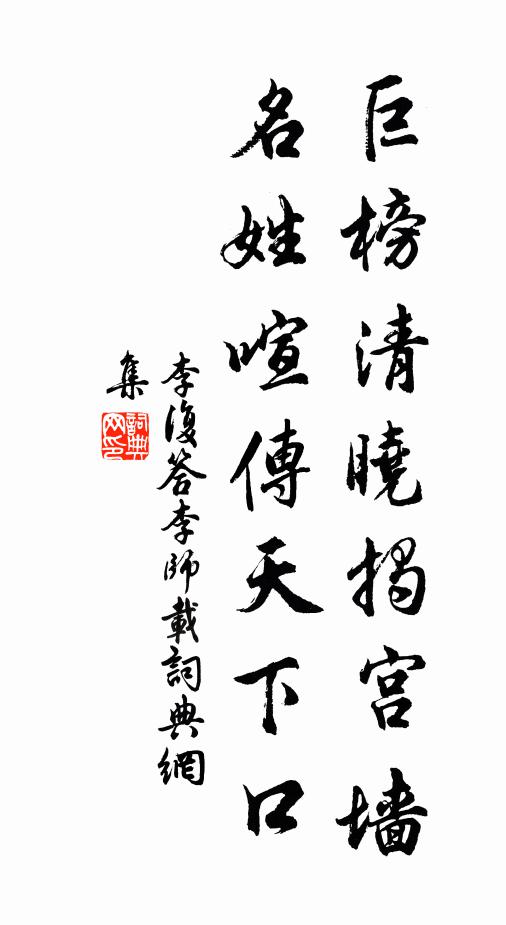 巨榜清曉揭宫墻
名姓喧傳天下口
李復答李師載詞典網
集
詞典網印